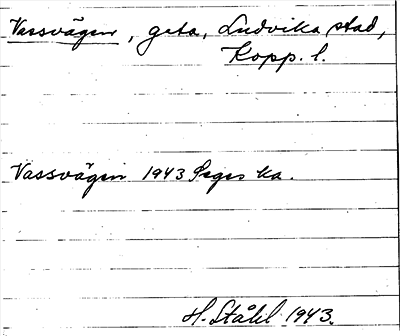 Vassvägen, gata, Ludvika stad,
Kopp. l.
Vassvägen 1943 ka.
H. Ståhl 1943.